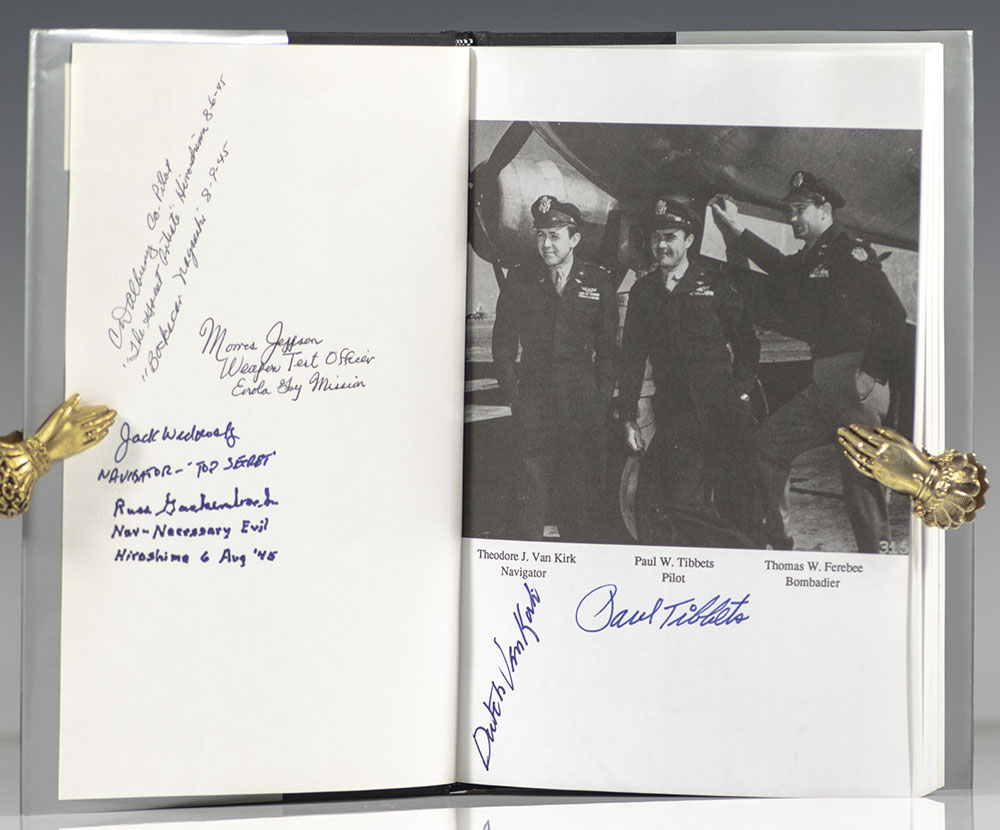 Co-Pilot
"The Great Artiste" Hiroshima 8-6-45
"Bockscar" Nagasaki 8-9-45
Morris Jeppson
Weapon Test Officer
Enola Gay Mission
Jack Widowsky
NAVIGATOR - "TOP SECRET"
Russ Gackenbach
Nav-Necessary Evil
Hiroshima 6 Aug '45
315
Theodore J. Van Kirk
Navigator
Paul W. Tibbets
Pilot
Thomas W. Ferebee
Bombadier
Dutch Van Kirk
Paul Tibbets